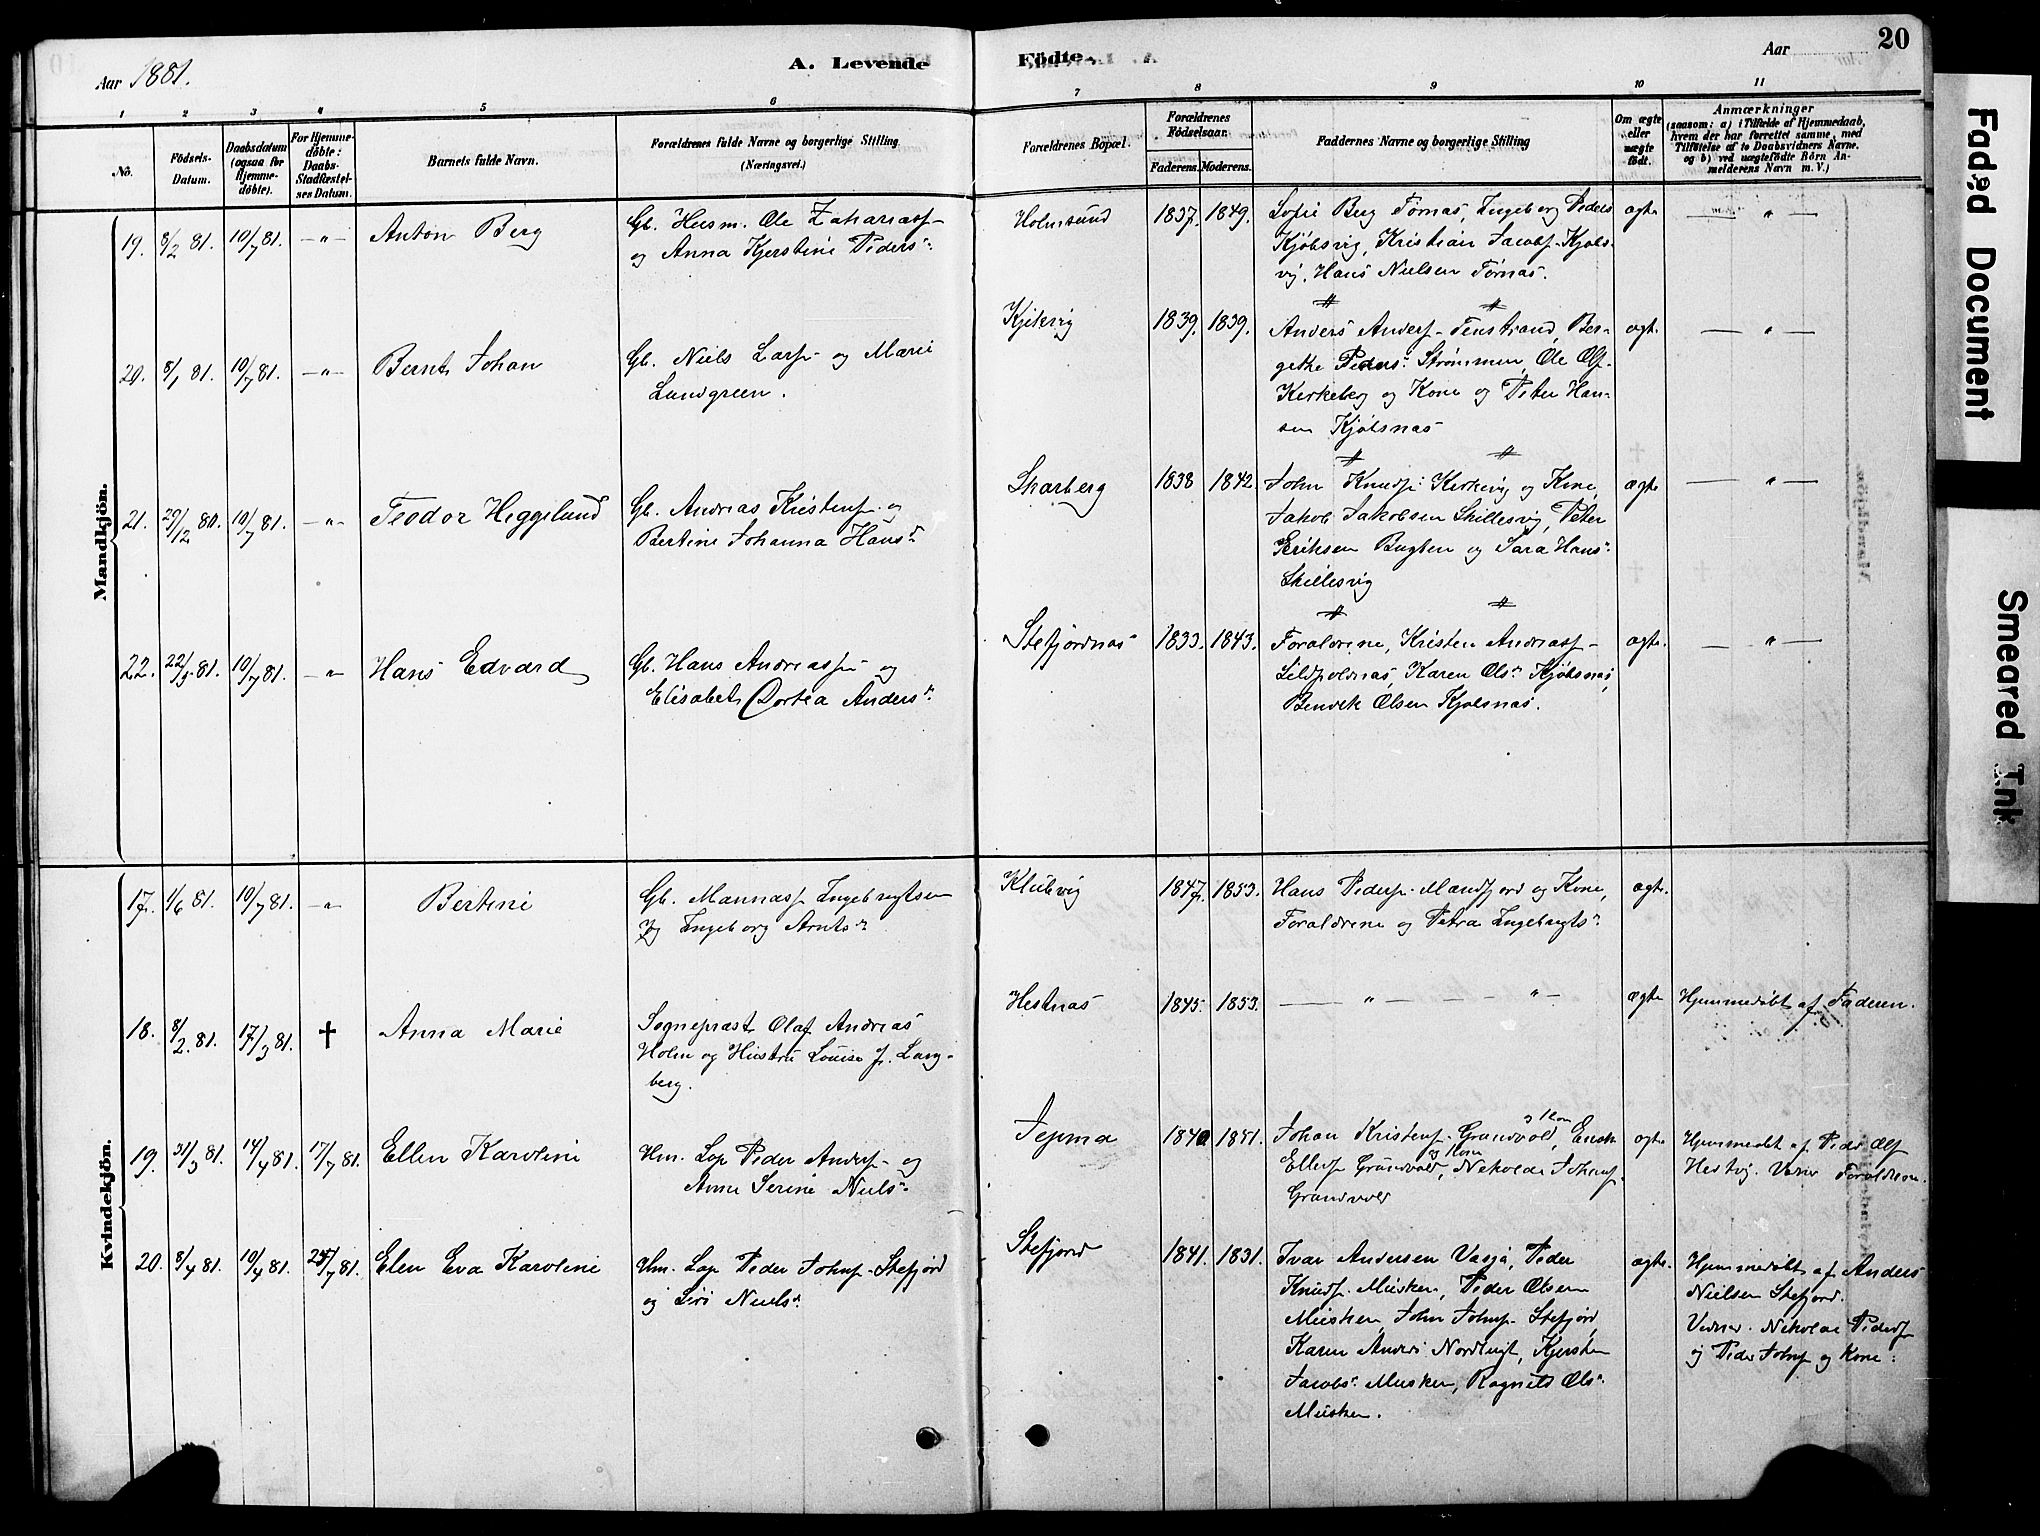 Aar 1881.
A. Levende
Födte.
Aar
20
1 2 3 4 5 6 7 8 9 10 11
No.
Födsels-
Datum.
Daabsdatum
(ogsaa for
Hjemme-
döbte).
For Hjemme-
döbte:
Daabs-
Stadfæstel-
ses Datum.
Barnets fulde Navn.
Forældrenes fulde Navne og borgerlige Stilling
(Næringsvei.)
Forældrenes Bopæl.
Forældrenes
Födselsaar.
Faderens. Moderens.
Faddernes Navne og borgerlige Stilling
Om ægte
eller
uægte
födt.
Anmærkninger
(saasom: a) i Tilfælde af Hjemmedaab,
hvem der har forrettet samme, med
Tilföielse af to Daabsvidners Navne.
og b) ved uægtefödte Börn An-
melderens Navn m. V.)
Mandkjön.
19. 8/2 81. 10/7 81. —"— Anton Berg
Gb. Husm. Ole Zakariass-
og Anna Kjerstine Peders.
Holmsund 1837. 1849.
Sofie Berg Tørnæs, Ingeborg Peders
Kjøbsvig, Kristian Jacobs- Kjøbs-
vig, Hans Nielsen Tørnæs.
ægte — " —
20. 8/1 81. 10/7 81. —"— Bernt Johan
Gb. Niels Lars- og Marie
Lundgreen.
Kjikvig 1839. 1839.
Anders Anders- Finstrand, Ber-
gethe Peders. Strømmen, Ole Ols-
Kirkeberg og Kone og Peter Han-
sen Kjøbsnæs
ægt. — " —
21. 29/12 80. 10/7 81. —"— Teodor Heggelund
Gb. Andreas Kristens- og
Bertine Johanna Hans
Skarberg 1838 1842.
John Knuds- Kirkvig og Kone,
Jakob Jakobsen Skillesvig, Peter
Eriksen Bugten og Sara Hans
Skillesvig
ægte — " —
22. 22/5 81. 10/7 81. —"— Hans Edvard
Gb. Hans Andreass- og
Elisabet Dortea Anders
Stefjordnæs 1833. 1843.
Forældrene, Kristen Andreass-
Sildpoldnæs, Karen Ols Kjøbsnæs,
Bendik Olsen Kjøbsnæs.
ægte. — " —
Kvindekjön.
17. 1/6 81. 10/7 81. —"— Bertine
Gb. Mannass Ingebrigtsen
og Ingeborg Arnts
Klubvig 1847. 1853.
Hans Peders- Mandfjord og Kone,
Forældrene og Petra Ingebrigts
ægt.
18. 8/2 81. 17/3 81. † Anna Marie
Sognepræst Olaf Andreas
Holm og Hustru Louise f. Lang-
berg.
Hestnæs 1845. 1853.
— " — — " —
ægte Hjemmedøbt af Faderen.
19. 31/3 81. 14/4 81. 17/7 81. Ellen Karoline
Hm. Lap Peder Anders- og
Anne Serine Niels
1840 1851.
Johan Kristens- Grundvold og Kone, Enok
Ellefs- Grundvold og Kone, Nikolai Johns-
Grundvold
ægte Hjemmedøbt af Peder Ols
Hestvig. Vidner Forældrene.
20. 8/4 81. 10/4 81. 25/7 81. Elen Eva Karoline
Hm. Lap Peder Johns- Stefjord
og Siri Niels
Stefjord 1841. 1831.
Ivar Andersen Vasja, Peder
Knuds- Musken, Peder Olsen
Musken, John Johns- Stefjord,
Karen Anders Nordbugt, Kjersten
Jacobs Musken, Ragnild Ols
Musken.
ægte. Hjemmedøbt af Anders
Nielsen Stefjord.
Vidner. Nikolai Peders
og Peder Johns og Kone.
Faded Document
Smeared Ink